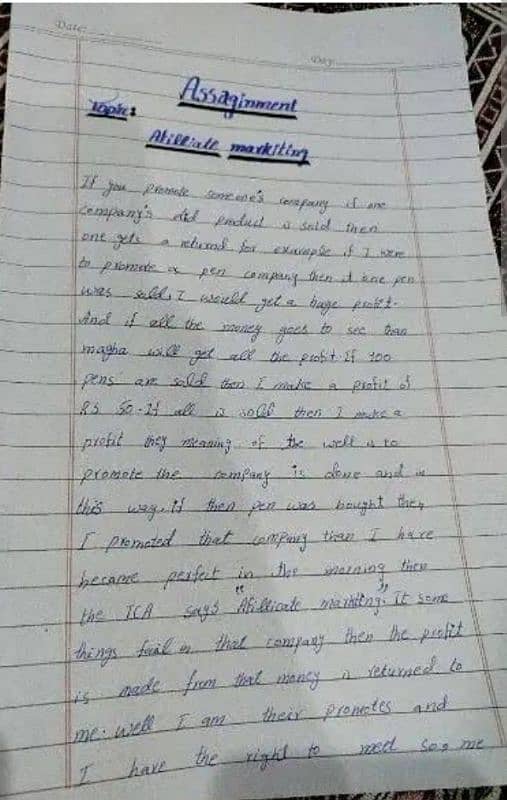 Date:
Day
Assaginment
Topic:
Afilliate markiting
If you promote someone's company if one
company's did product is sold then
one gets a returnd for example if I were
to promote a pen company then if one pen
was sold, I would get a huge profit.
And if all the money goes to see than
magha will get all the profit. If 100
pens are sold then I make a profit of
RS 50. If all is sold then I make a
profit they meaning of the well is to
promote the company is done and in
this way. if then pen was bought then
I promoted that company than I have
became perfect in the morning then
the ICA says "Afillicate markting". It some
things fail in that company then the profit
is made from that money is returned to
me. well I am their promotes and
I have the right to meet me